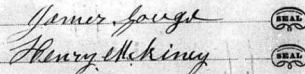 James Gough SEAL
Henry McKiney SEAL